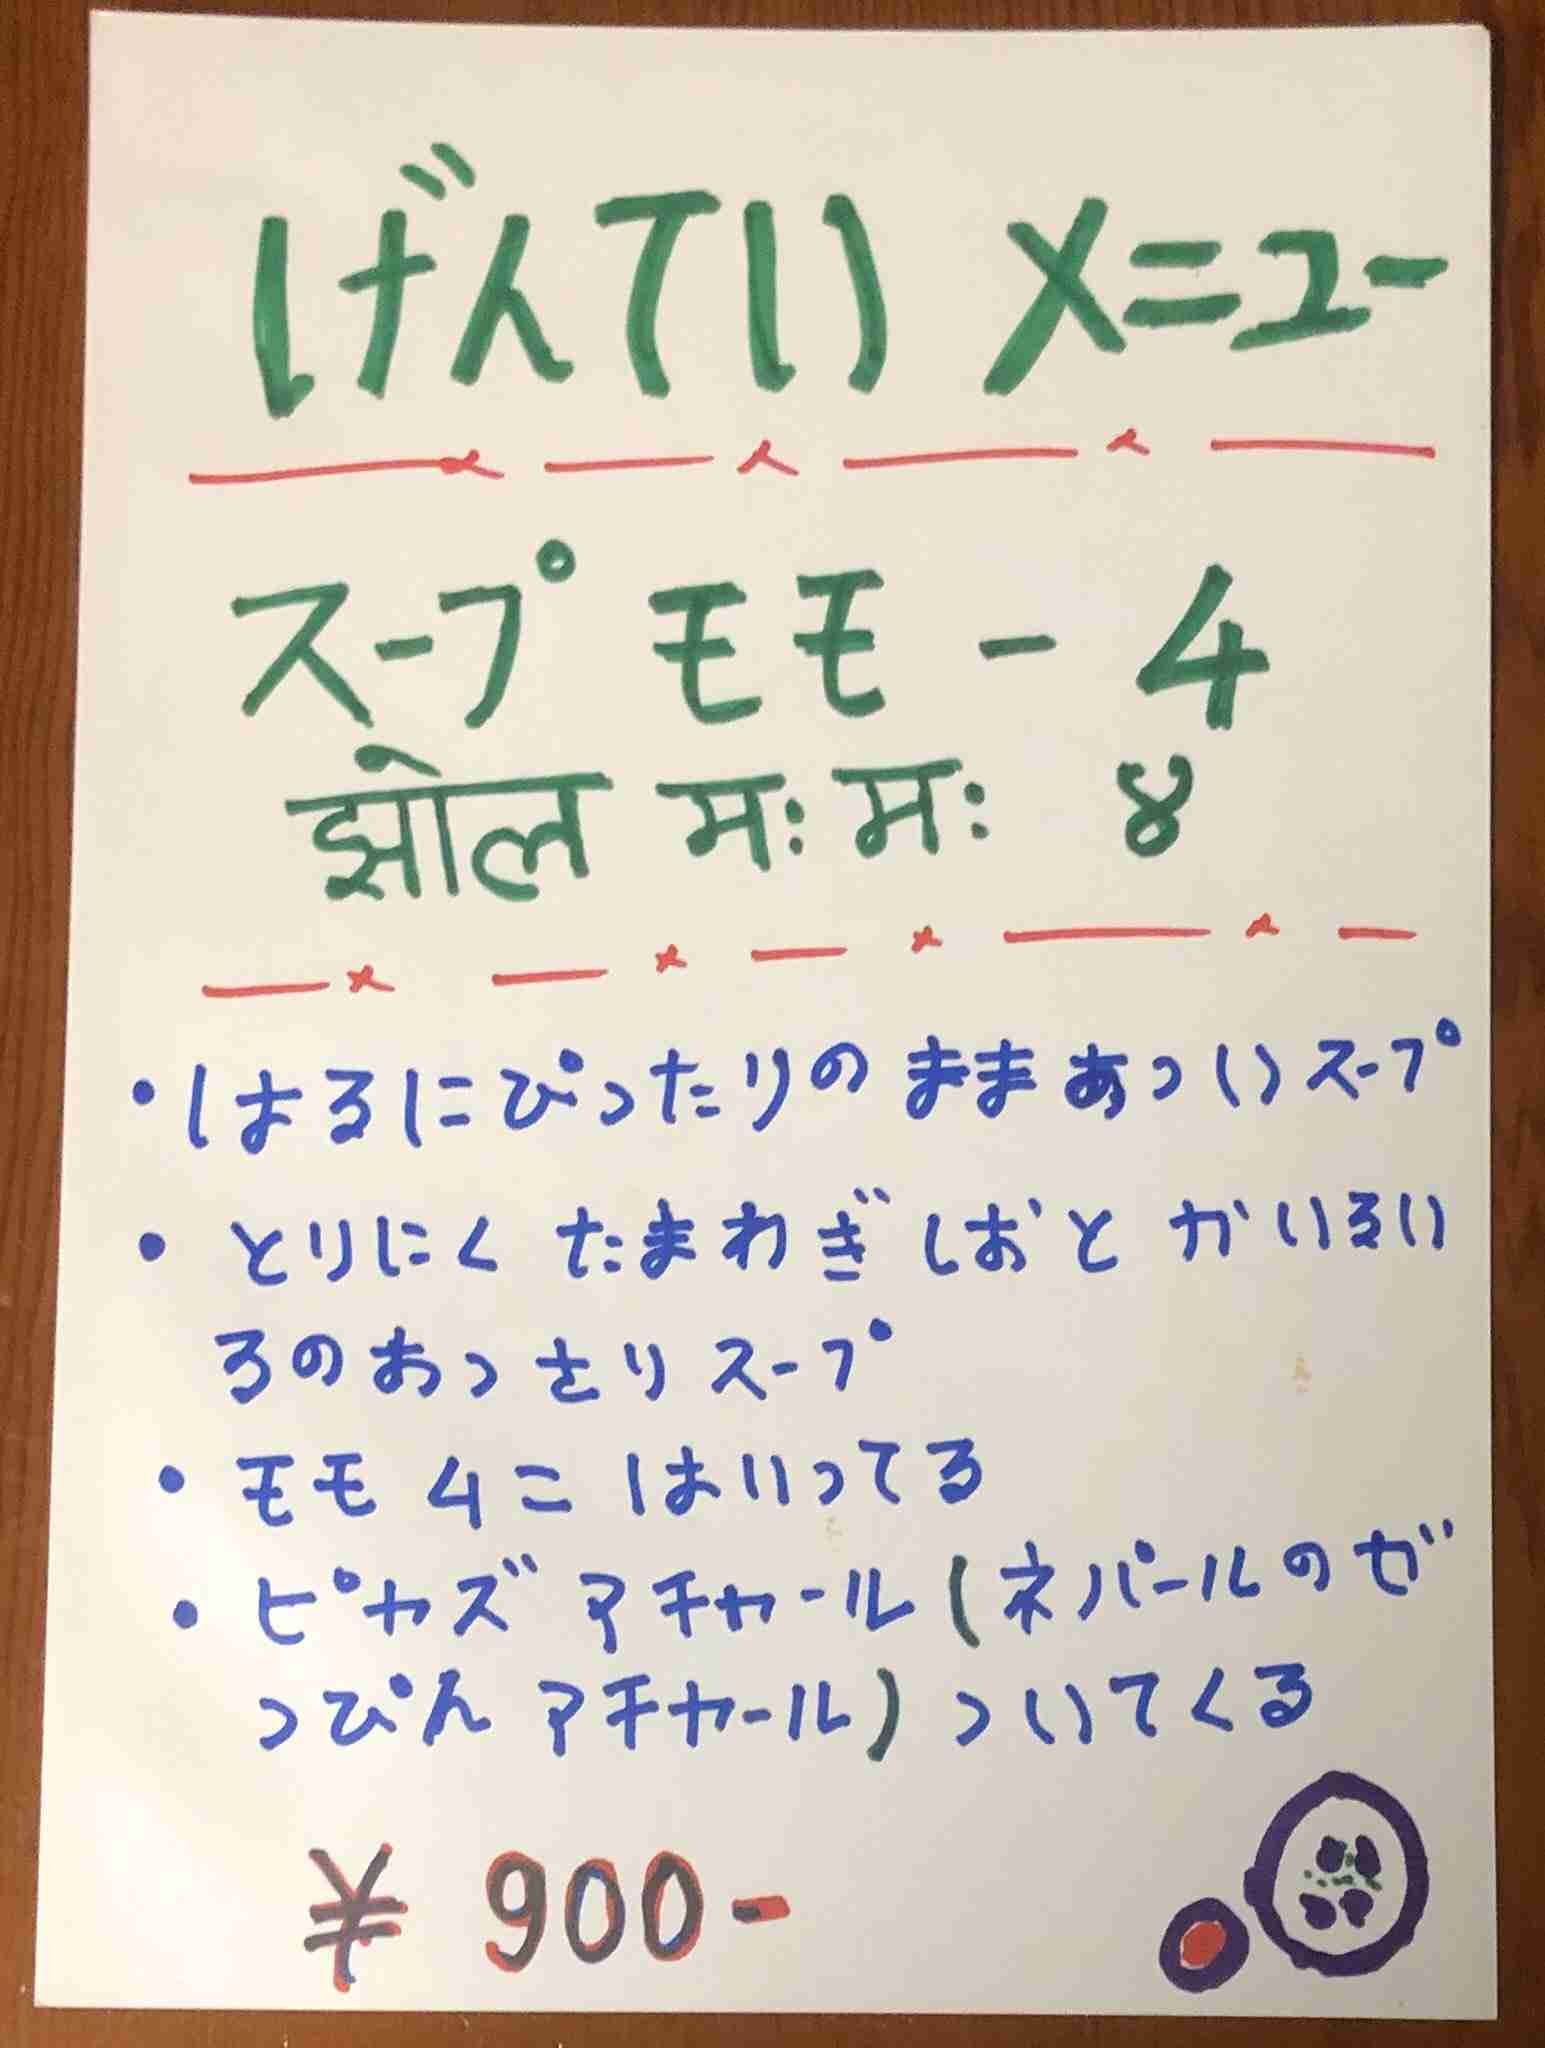 げんてい メニュー
スープ モモ - 4
झोल मः मः ४
・はるにぴったりの ままあついスープ
・とりにく たまわぎ しおと かいるい
ろのあっさりスープ
・モモ 4こ はいってる
・ピヤズ アチャール (ネパールのぜ
っぴん アチャール) ついてくる
¥ 900-